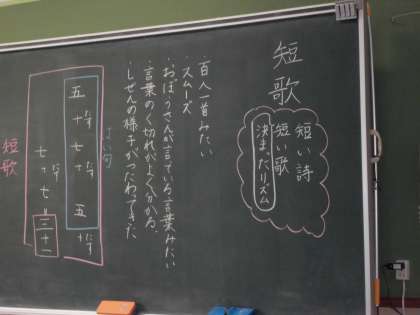 短歌
短い詩
短い歌
決まったリズム
・百人一首みたい
・スムーズ
・おぼうさんが言ている言葉みたい
・言葉のく切れがよくわかる。
・しぜんの様子がつたわってきた
五+たす七+たす五+たす
七+たす七=三十一
短歌